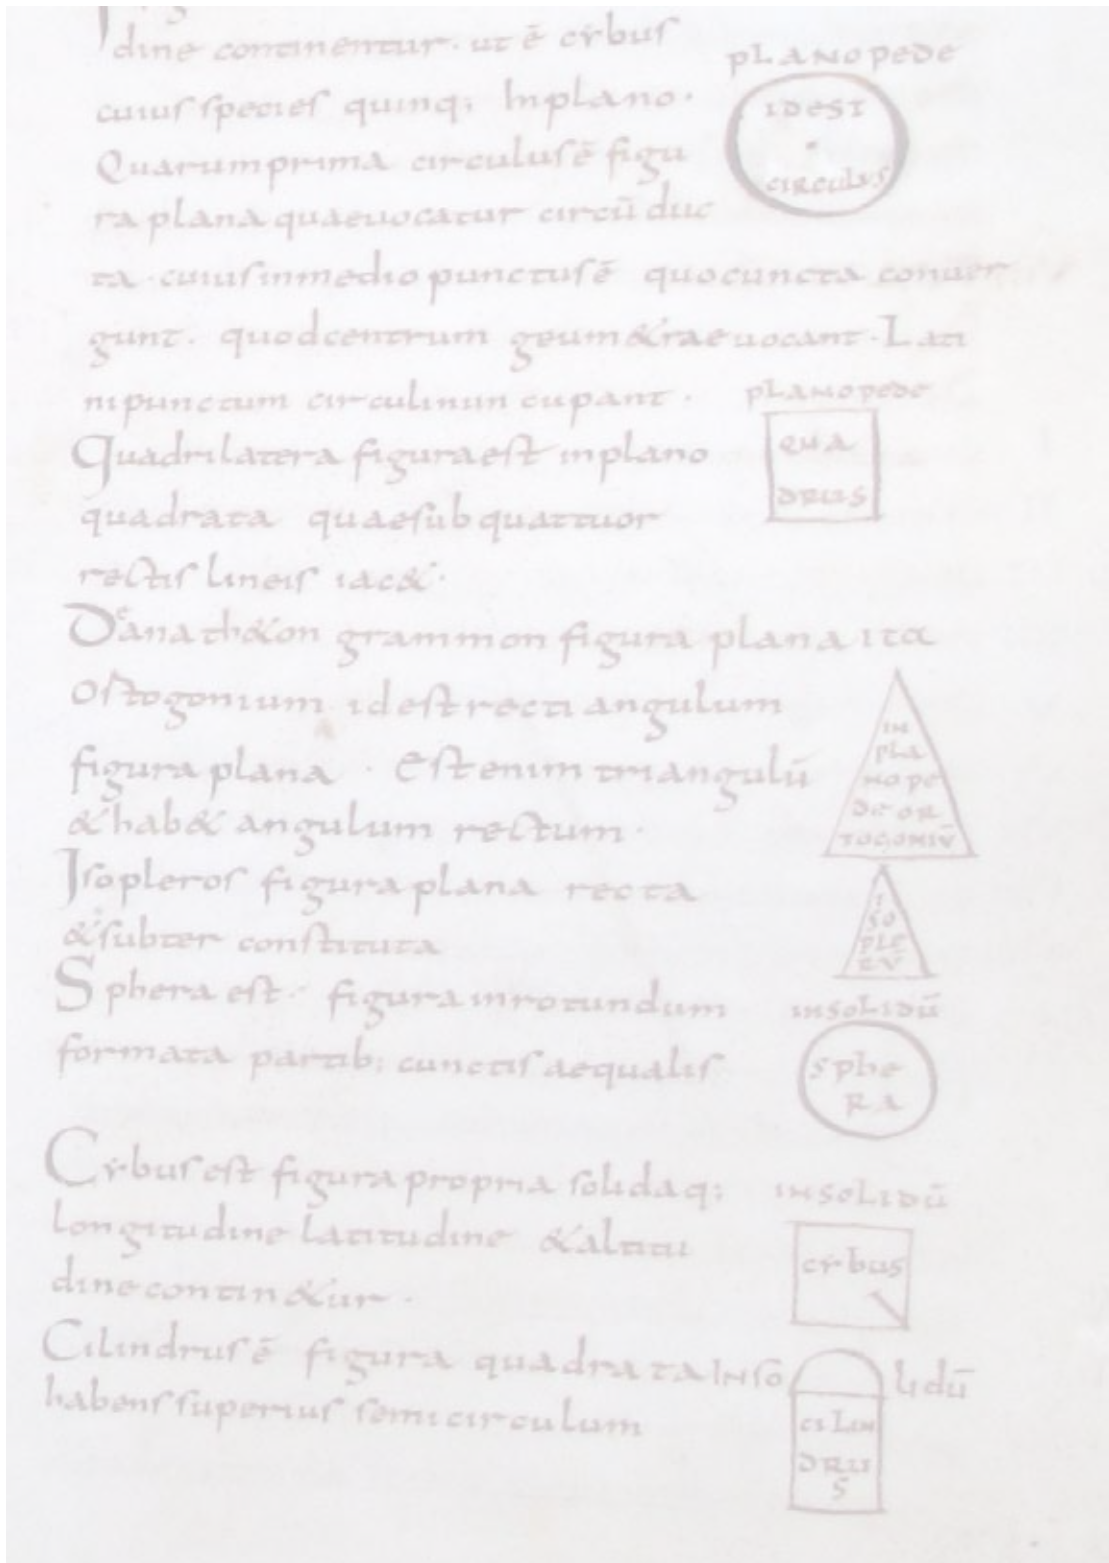 dine continentur. ut ē cẏbus
cuius species quinq; In plano.
Quarum prima circulus ē figu
ra plana quae uocatur circū duc
ta. cuius in medio punctus ē quo cuncta conuer
gunt. quod centrum geum&rae uocant. Lati
ni punctum circulinun cupant.
Quadrilatera figura est in plano
quadrata quae sub quattuor
rectis lineis iac&.
figura plana ita
ostogonium id est recti angulum
figura plana. Est enim triangulū
& hab& angulum rectum.
Isopleros figura plana recta
& subter constituta
Sphera est. figura in rotundum
formata partib; cunctis aequalis
Cẏbus est figura propria solida q;
longitudine latitudine & altitu
dine contin&ur.
Cilindrus ē figura quadrata
habens superius semicirculum
PLANO PEDE
IDEST
CIRCULUS
PLANO PEDE
QUA
DRUS
IN
PLA
NO PE
DE OR
TOGONIŪ
I
SO
PLE
RV
IN SOLIDŪ
SPHE
RA
IN SOLIDŪ
CẎBUS
INSO LIDŪ
CILIN
DRU
S